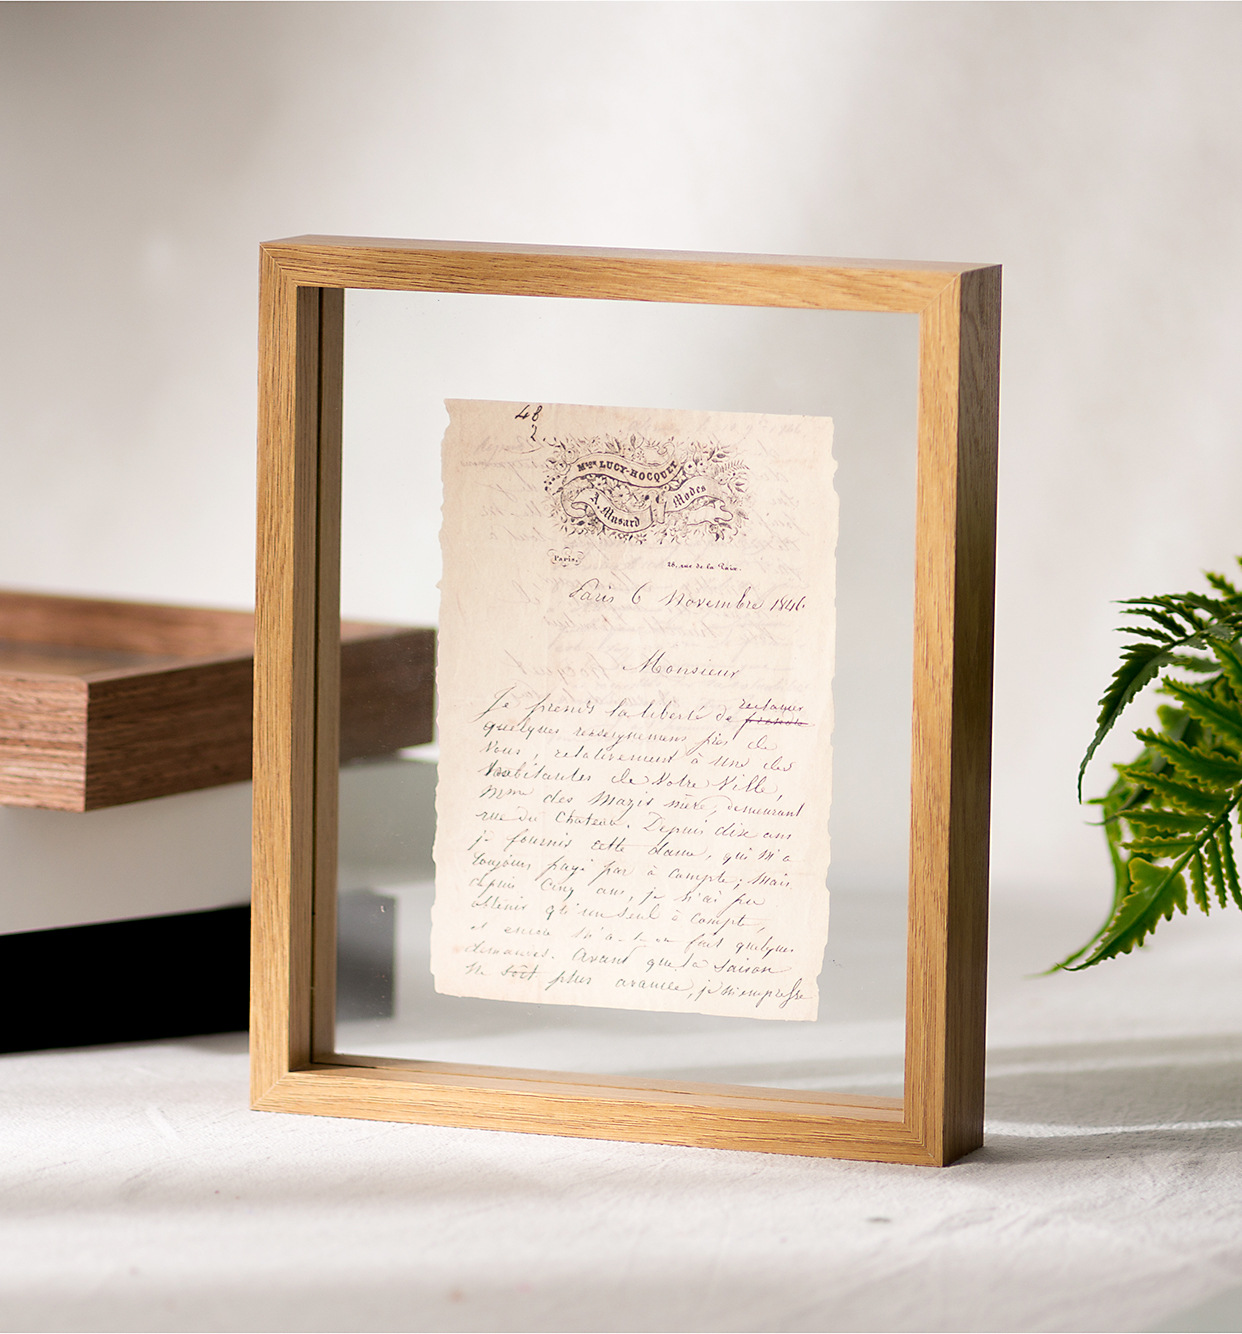 48
2.
Mme LUCY-HOCQUET
A. Musard Modes
Paris. 28, rue de la Paix.
Paris 6 Novembre 1846
Monsieur
reclamer
Je prends la liberté de
quelques renseignemens près de
Vous, relativement à une des
habitantes de Votre Ville,
Mme des Mazis mère, demeurant
rue du Chateau. Depuis dix ans
je fournis cette dame, qui m'a
toujours payé par à compte; mais
depuis cinq ans, je n'ai pu
obtenir qu'un seul à compte,
et encore m'a-t-on fait quelques
demandes. Avant que la saison
ne soit plus avancée, je m'empresse